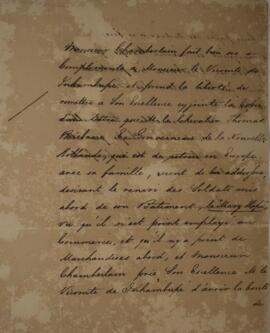 Monsieur Chamberlain fait bien ses
complements à Monsieur le Vicomte de
Inhambupe et prend la liberté de
remettre à Son Excellence cy jointe la Copie
d'une Lettre que le Chevalier Thomas
Brisbane Ex Gouverneur de la Nouvelle
Hollande, qui est de retour en Europe
avec sa famille, vient de lui addresser
desirant le renvoi des Soldats mis
abord de son Batiment,
vu qu'il n'est point employé au
Commerce, et qu'il n'y a point de
Marchandises abord, et Monsieur
Chamberlain prie Son Excellence M. le
Vicomte de Inhambupe d'avoir la bonté
de